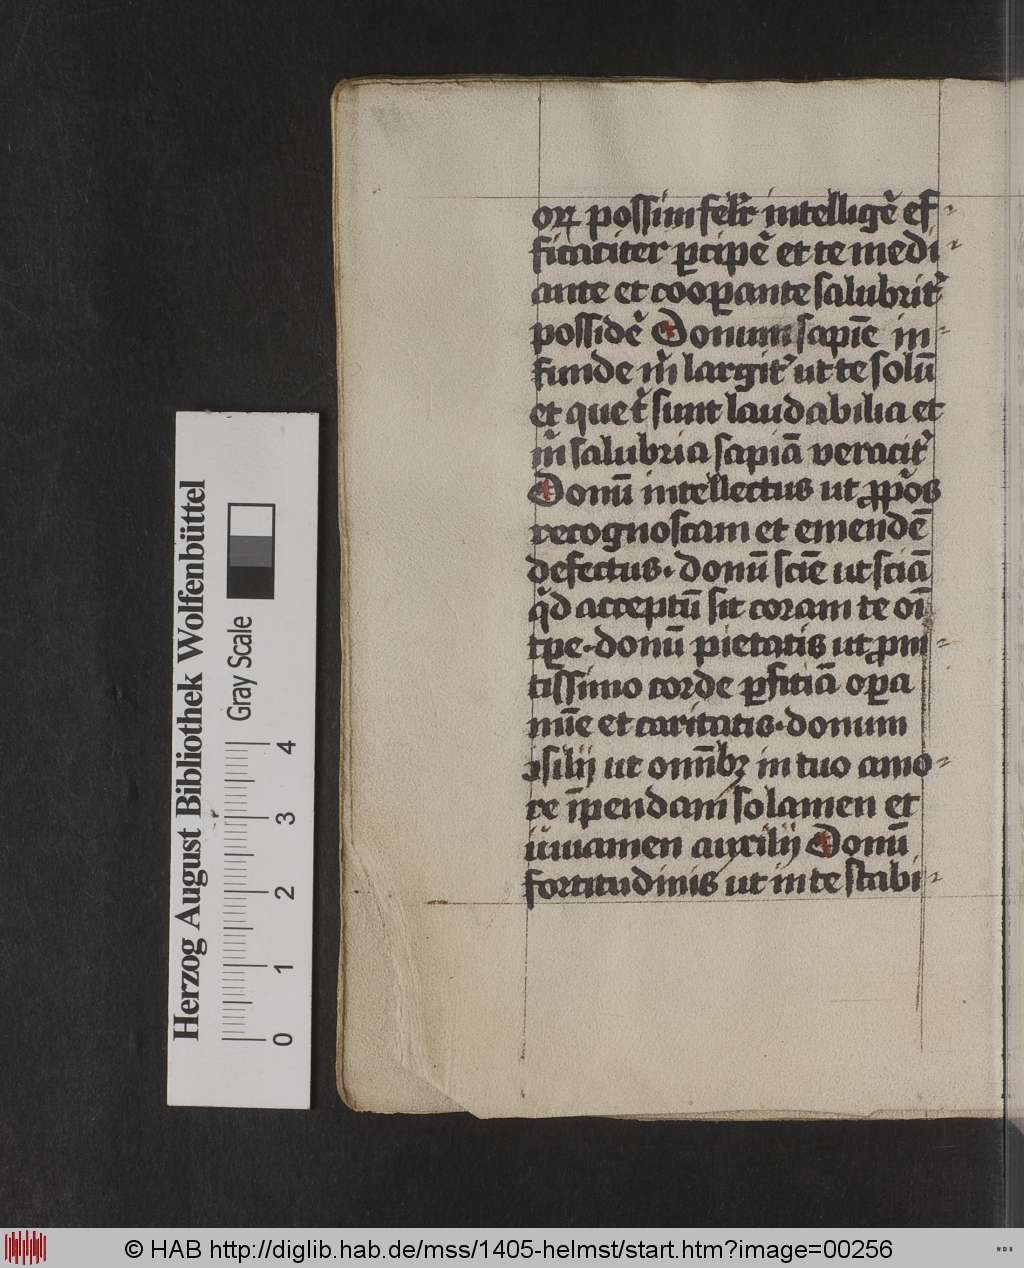 orꝝ possim felr̄ intelligē ef-
ficaciter ꝑcipē et te medi-
ante et cooꝑante salubrit᷑
possidē Donum sapīe in-
funde m̄ largit᷑ ut te solū
et que t̄ sunt laudabilia et
m̄ salubria sapiā veracit᷑
Donū intellectus ut ꝓpͥos
recognoscam et emendē
defectus · donū scīe ut sciā
qͦd acceptū sit coram te oī
tꝑe · donū pietatis ut ꝓm-
tissimo corde ꝑficiā oꝑa
mīe et caritatis · donum
ꝯsilij ut om̄ibꝫ in tuo amo-
re īpendam solamen et
iuuamen auxilij Donū
fortitudinis ut in te stabi-
Herzog August Bibliothek Wolfenbüttel
Gray Scale
0 1 2 3 4
© HAB http://diglib.hab.de/mss/1405-helmst/start.htm?image=00256